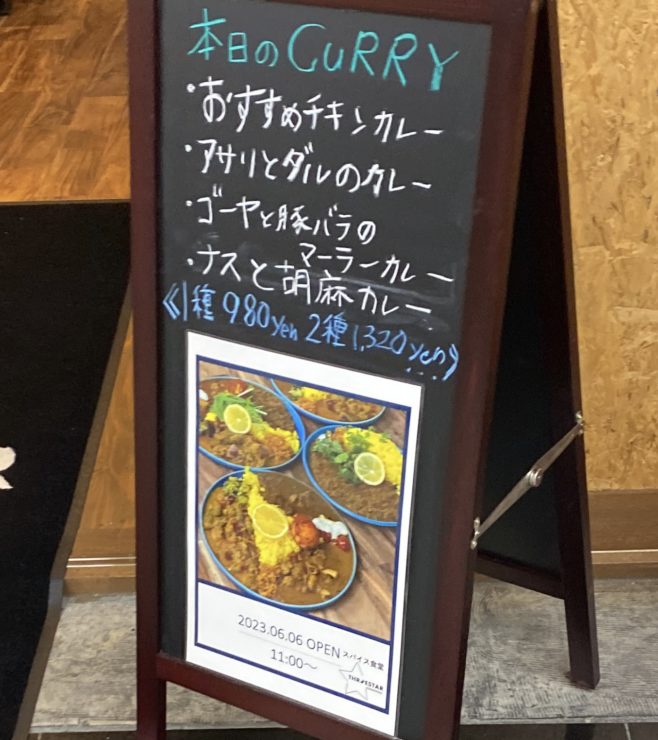 本日のCURRY
・おすすめチキンカレー
・アサリとダルのカレー
・ゴーヤと豚バラの
マーラーカレー
・ナスと胡麻カレー
《1種 980yen 2種 1,320yen》
2023.06.06 OPEN スパイス食堂
11:00～
THREESTAR